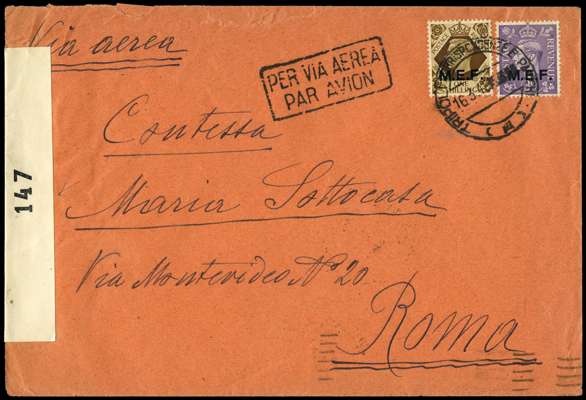 Via aerea
PER VIA AEREA
PAR AVION
M.E.F.
M.E.F.
REVENUE
Contessa
Maria Sottocasa
Via Montevideo Nº 20
Roma
147